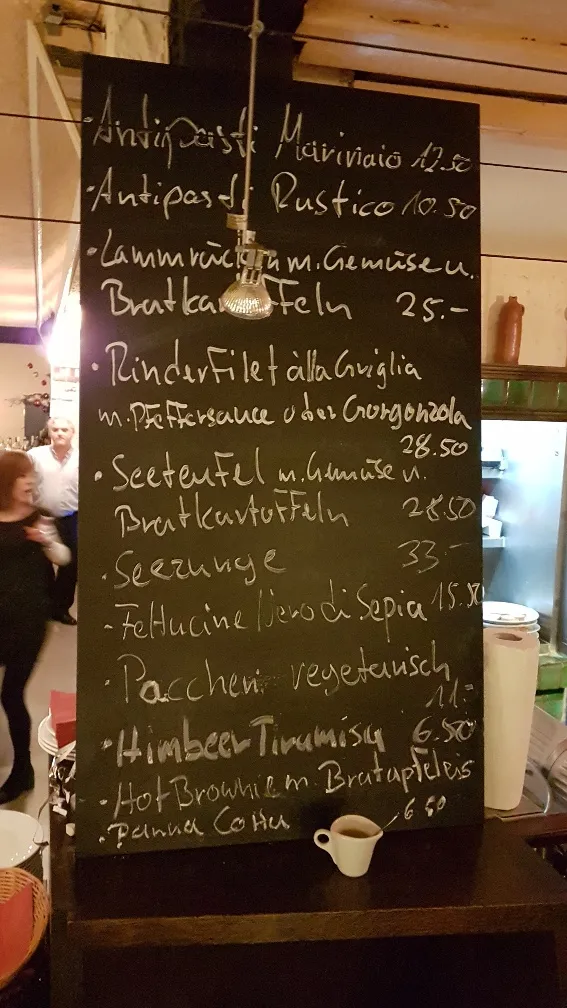 ·Antipasti Marinaio 12.50
·Antipasti Rustico 10.50
·Lammrücken m. Gemüse u.
Bratkartoffeln 25.-
·Rinderfilet àlla Griglia
m. Pfeffersauce oder Gorgonzola
28.50
·Seeteufel m. Gemüse u.
Bratkartoffeln 28.50
·Seezunge 33.-
-Fettucine Nero di Sepia 15.50
·Paccheri vegetarisch
11.-
·Himbeer Tiramisu 6.50
·Hot Brownie m. Bratapfeleis
·Panna Cotta 6.50